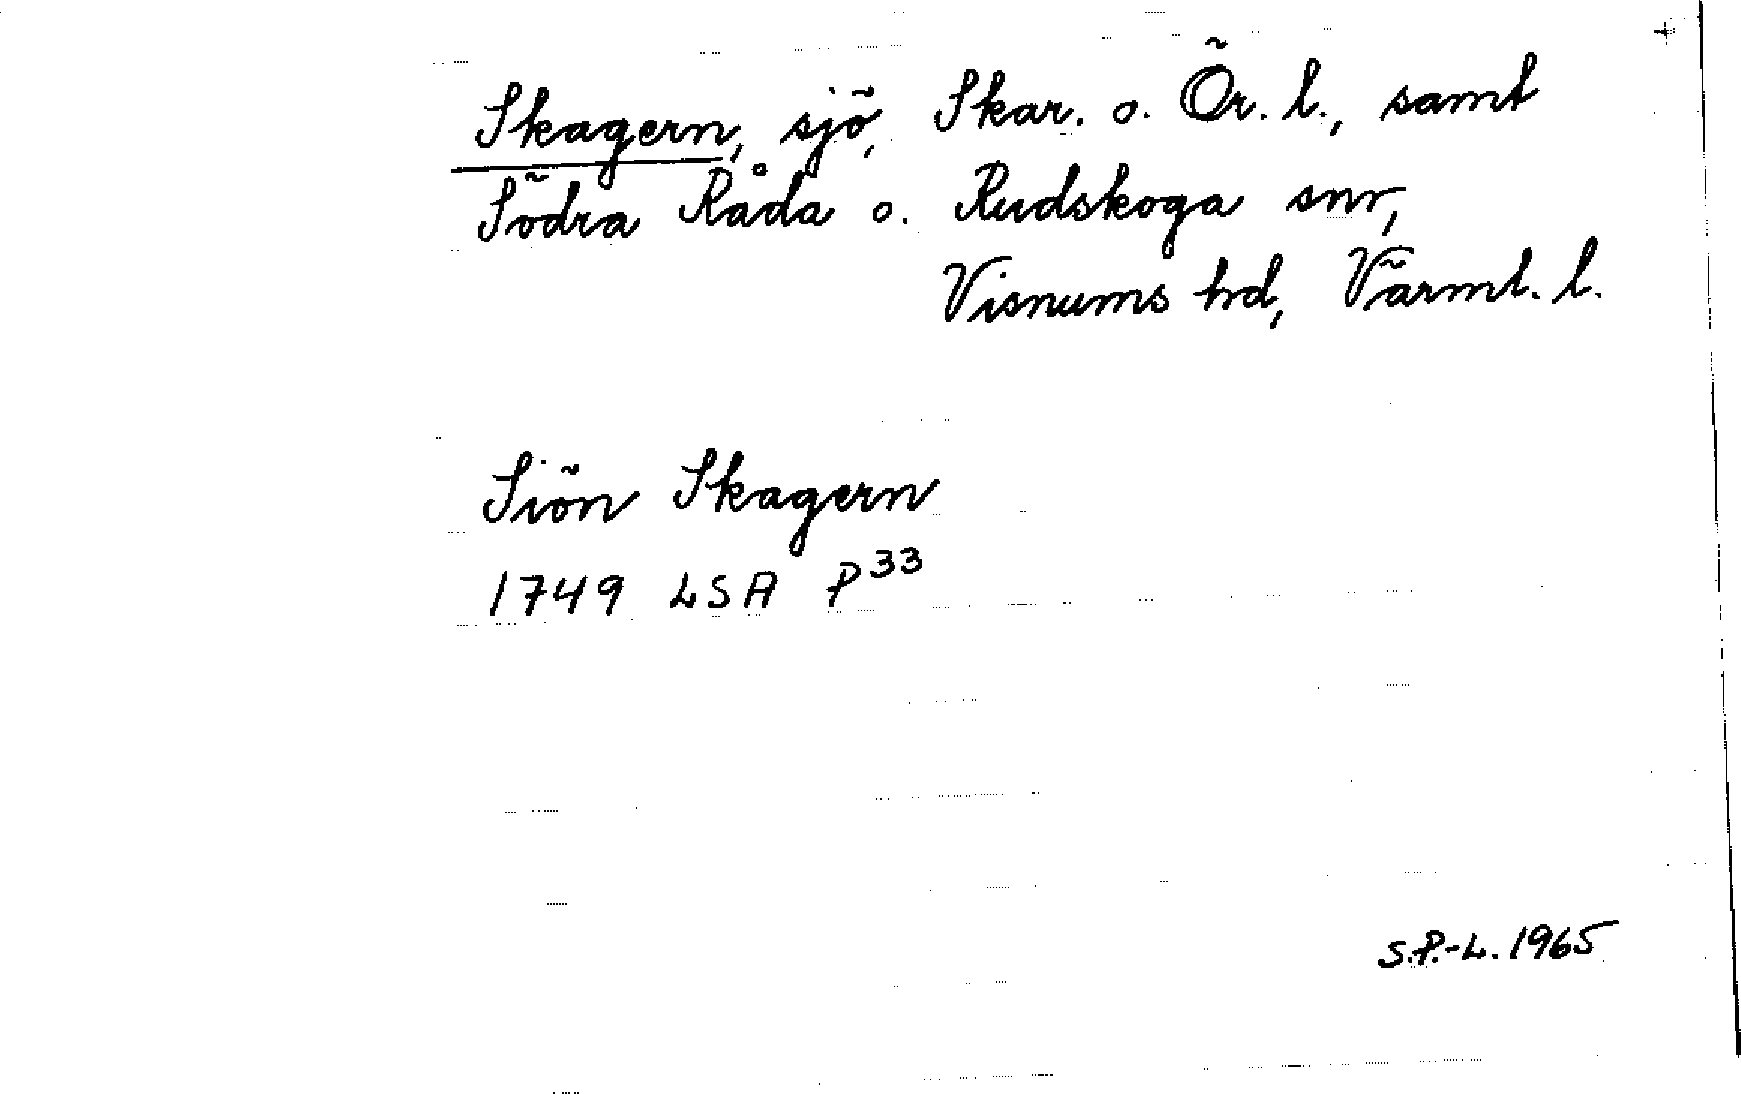 Skagern, sjö, Skar. o. Ör. l., samt
Södra Råda o. Rudskoga snr,
Visnums hd, Värml. l.
Siön Skagern
1749 LSA P 33
S.P.-L. 1965